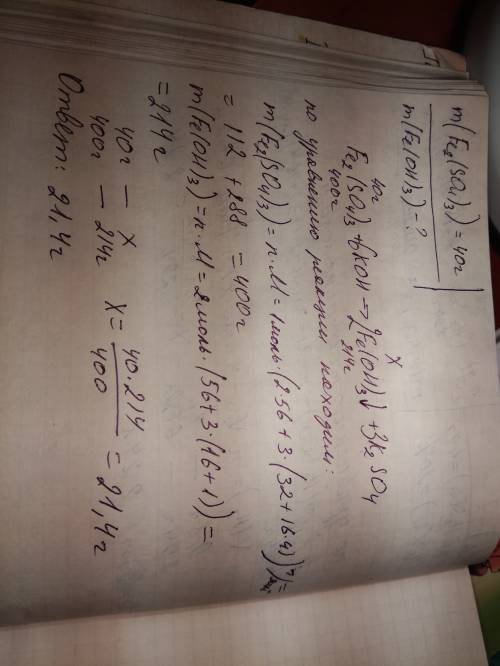 m(Fe₂(SO₄)₃) = 40г
m(Fe(OH)₃) – ?
40г X
Fe₂(SO₄)₃ + 6KOH → 2Fe(OH)₃↓ + 3K₂SO₄
400г 214г
по уравнению реакции находим:
m(Fe₂(SO₄)₃) = n·M = 1моль·(2·56+3·(32+16·4)) =
= 112 + 288 = 400г
m(Fe(OH)₃) = n·M = 2моль·(56+3·(16+1)) =
= 214г
40г – X X = 40·214 / 400 = 21,4г
400г – 214г
Ответ: 21,4г